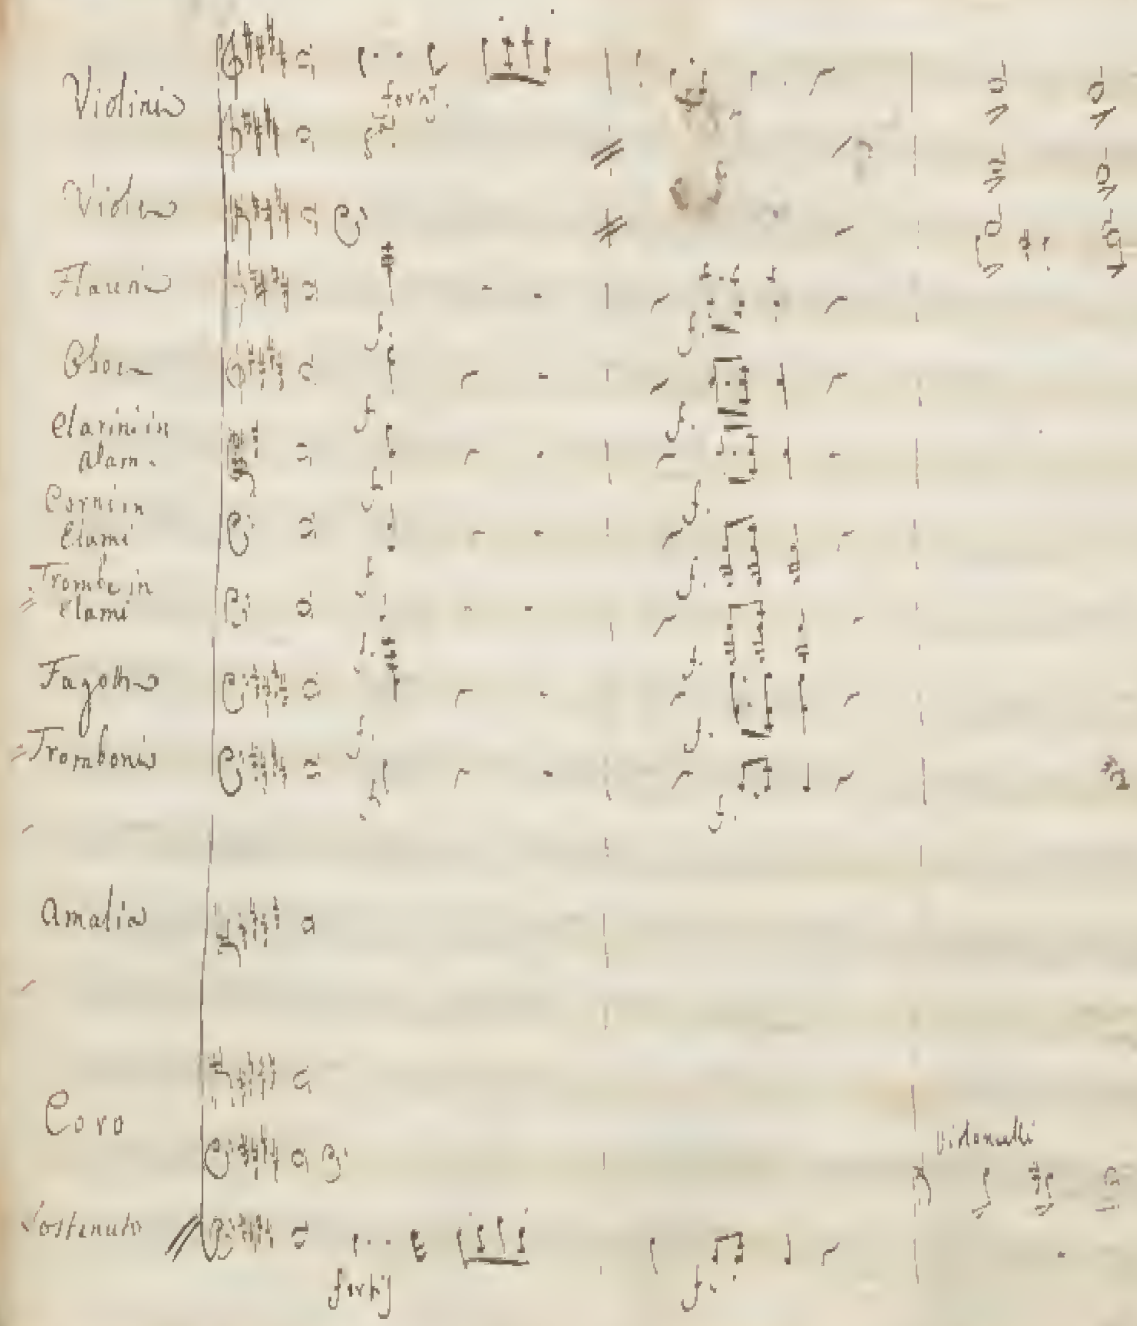 Violini
fortis.
Viole
Flauti
f.
Oboe
f.
f.
Clarini in
Alam.
f.
f.
Corni in
Elami
f.
f.
Trombe in
Elami
f.
f.
Fagotti
f.
f.
Tromboni
f.
f.
Amalia
Coro
Violoncelli
Sostenuto
f.